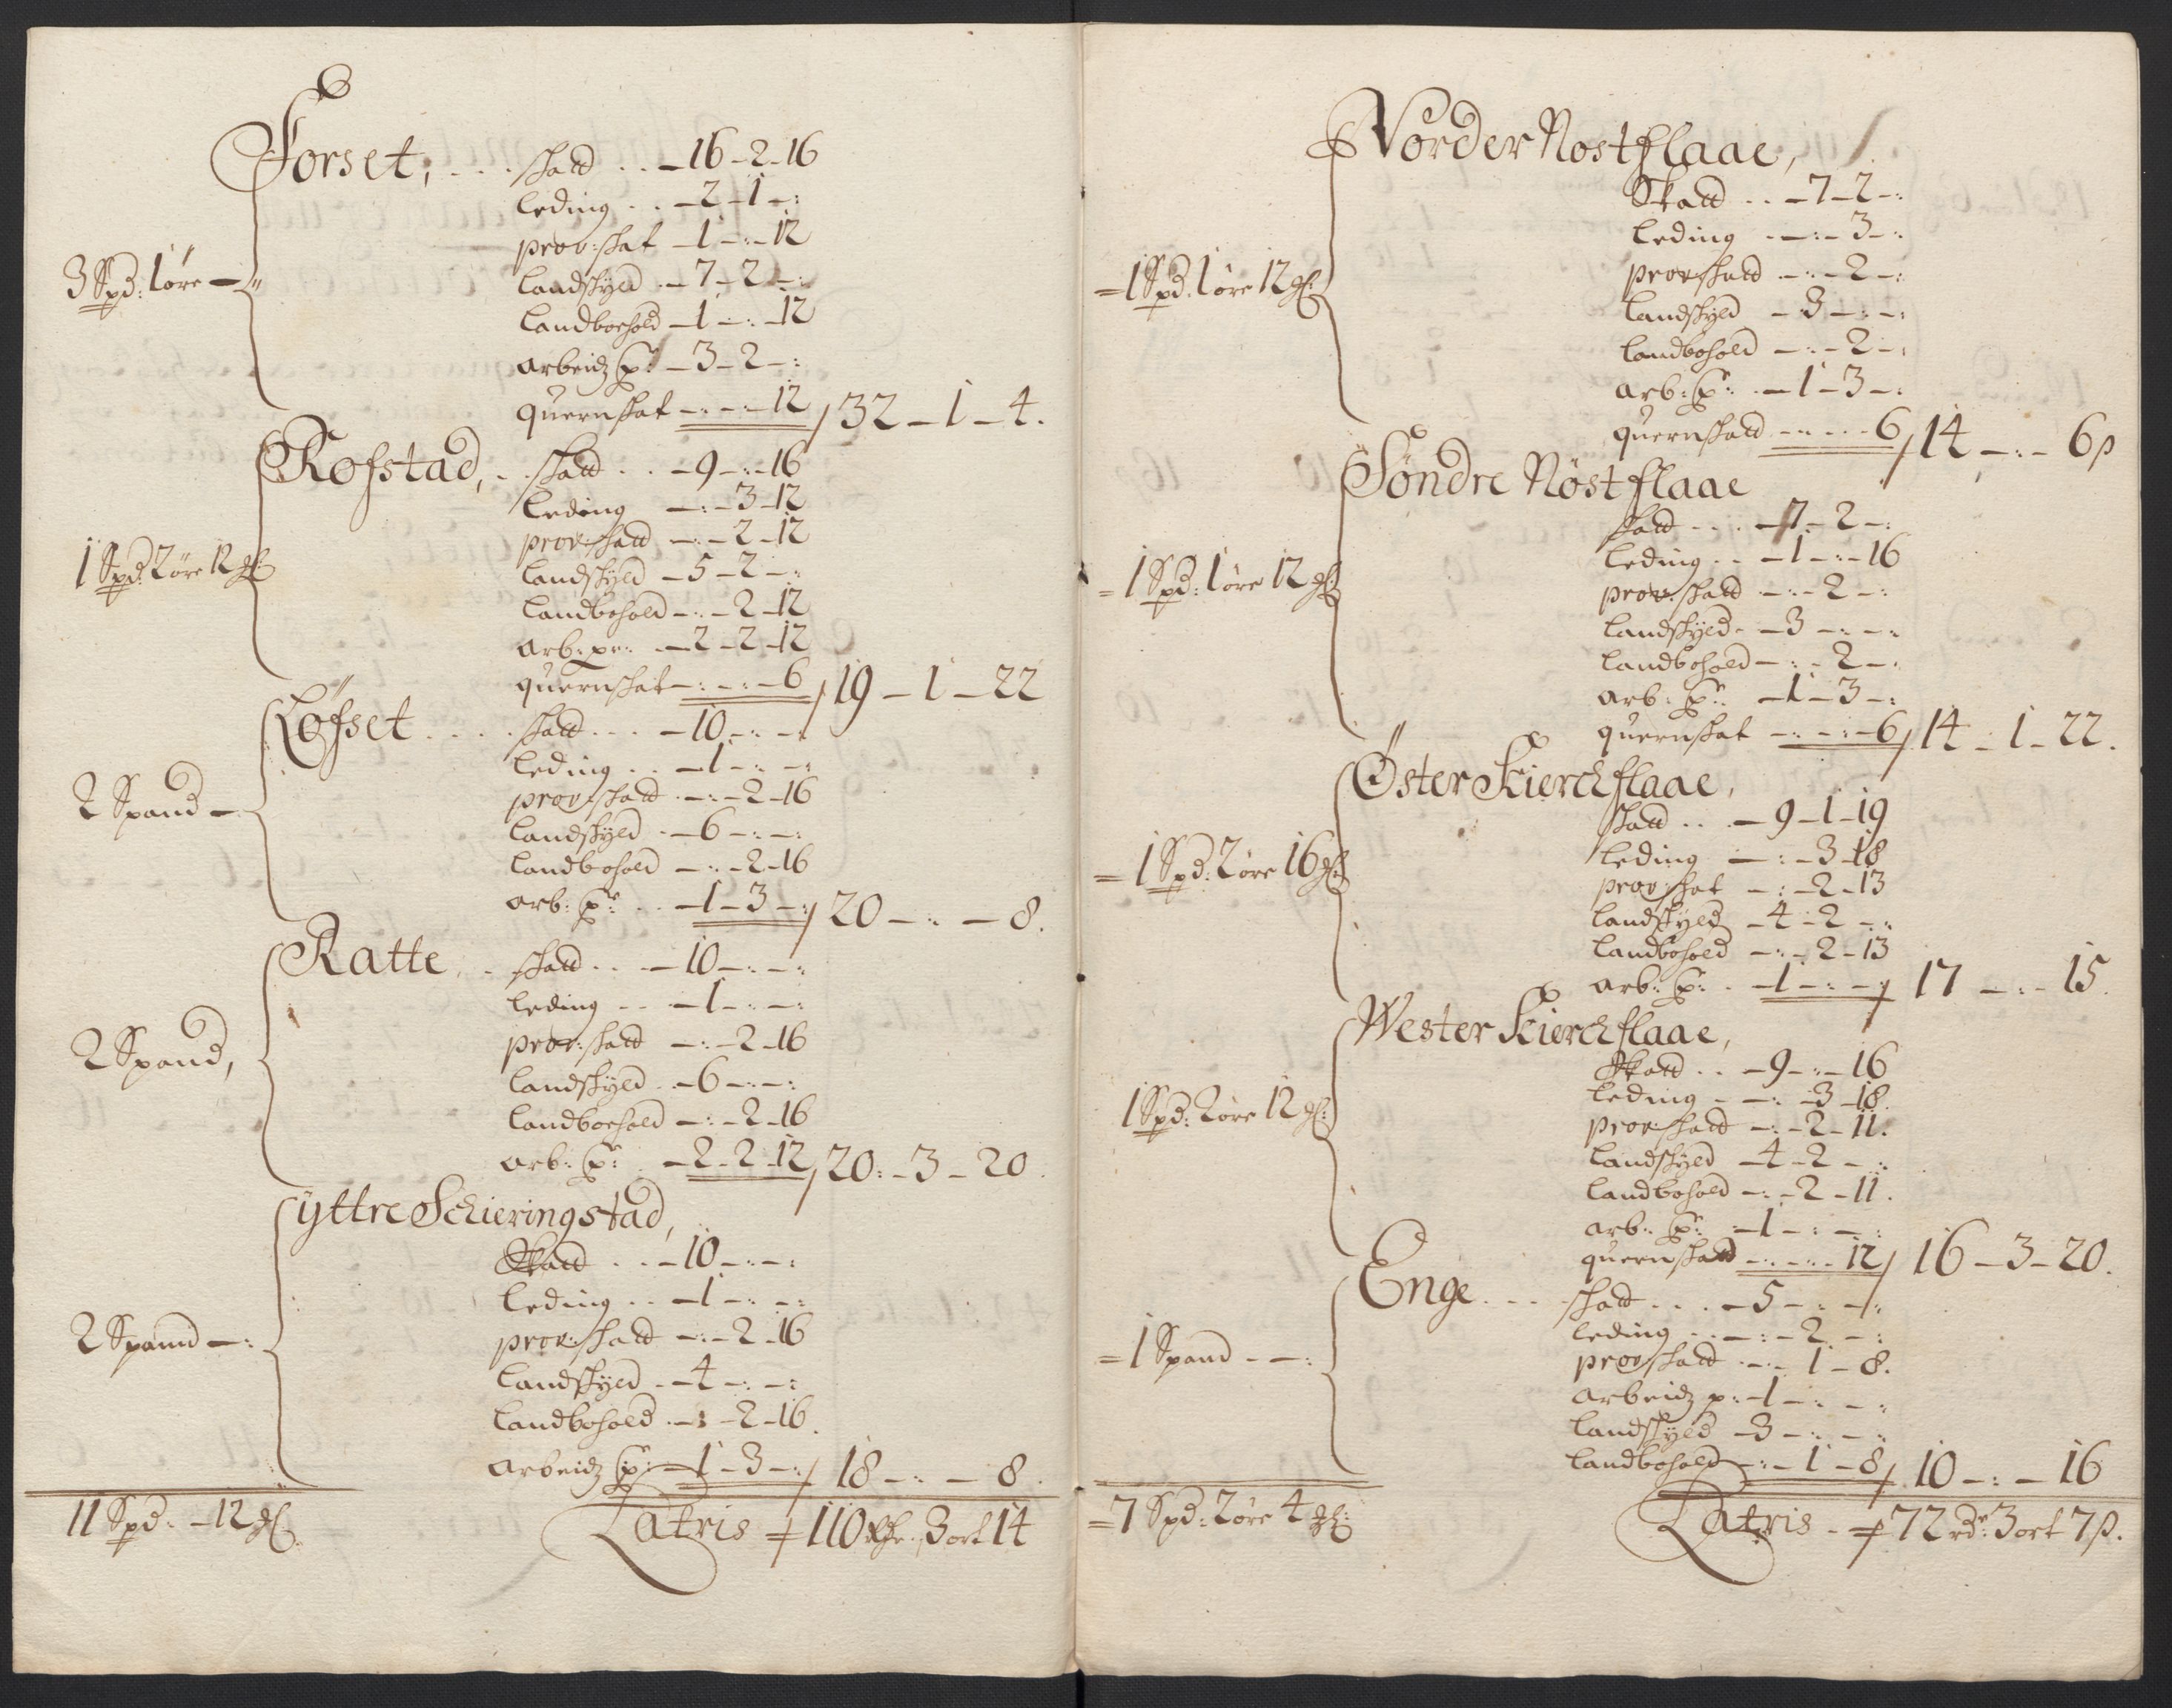 Forset; . . . skatt . . – 16 – 2 – 16
leding . . – 2 – 1 – :
prov: skat – 1 – : – 12
3 Spd: 1 øre – landskyld . – 7 – 2 – :
landboehold – 1 – : – 12
arbeidz p: – 3 – 2 – :
quernskat – : – : – 12 / 32 – 1 – 4.
Rofstad, . . skatt . . – 9 – : – 16
leding – : – 3 – 12
prov: skatt – : – 2 – 12
1 Spd: 2 øre 12 landskyld – 5 – 2 – :
landbohold – : – 2 – 12
arb: pr: . – 2 – 2 – 12
quernskat – : – : – 6 / 19 – 1 – 22
Løfset . . . . skatt . . . – 10 – : – :
leding . . – 1 – : – :
prov: skatt . – : – 2 – 16
2 Spand – landskyld . – 6 – : – :
landbohold – : – 2 – 16
arb: p: . . – 1 – 3 – : / 20 – : – 8.
Ratte . . skatt . . – 10 – : – :
leding . . – 1 – : – :
prov: skatt – : – 2 – 16
2 Spand, landskyld . – 6 – : – :
landboehold – : – 2 – 16
arb: p: . – 2 – 2 – 12 / 20 : – 3 – 20.
ÿttre Schieringstad,
Skatt . . – 10 – : – :
leding . . – 1 – : – :
prov: skatt – : – 2 – 16
2 Spannd – : landskyld . – 4 – : – :
landbohold . – : – 2 – 16.
arbeidz p: – 1 – 3 – : / 18 – : – 8.
11 Spd: – 12 Latris 110 3 ort 14
Nörder Nostflaae,
Skatt . . – 7 – 2 – :
leding . – : – 3 – :
prov: skatt . – : – 2 – :
= 1 Spd: 1 øre 12 landskyld – 3 – : – :
landbohold – : – 2 – :
arb: p: . – 1 – 3 – :
quernskatt – : – : – 6 / 14 – : – 6 ß
Söndre Nöstflaae
skatt . . . – 7 – 2 – :
leding . . – 1 – : – 16
= 1 Spd: 1 øre 12 prov: skatt . – : – 2 – :
landskyld – – 3 – : – :
landbohold – : – 2 – :
arb: p: – 1 – 3 – :
quernskat – : – : – 6 / 14 – 1 – 22.
Öster Kierchflaae,
skatt . . . – 9 – 1 – 19
leding – : – 3 – 18
= 1 Spd: 2 øre 16 prov: skat – : – 2 – 13
landskyld – 4 – 2 – :
landbohold – : – 2 – 13
arb: p: . – 1 – : – : / 17 – : – 15.
Wester Kierchflaae,
Skatt . . – 9 – : – 16
leding – – : – 3 – 18.
1 Spd: 2 øre 12 prov: skatt – : – 2 – 11.
landskyld – 4 – 2 – :
landbohold – : – 2 – 11.
arb: p: – 1 – : – :
quernskatt – : – : – 12 / 16 – 3 – 20.
Enge . . . skatt . . . – 5 – : – :
leding . . – : – 2 – :
= 1 Spand – – : prov: skatt . – : – 1 – 8.
arbeidz p: – 1 – : – :
landskyld – 3 – : – :
landbohold – : – 1 – 8 / 10 – : – 16
= 7 Spd: 2 øre 4 Latris . 72 rd: 3 ort 7 ß.